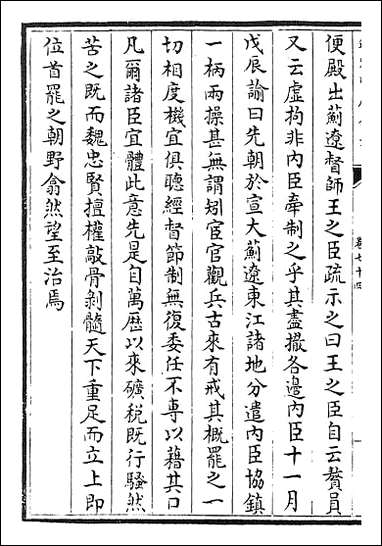 便殿出薊遼督師王之臣疏示之曰王之臣自云贅員
又云虛拘非内臣牽制之乎其盡撤各邊内臣十一月
戊辰諭曰先朝於宣大薊遼東江諸地分遣内臣協鎮
一柄兩操甚無謂矧宦官觀兵古來有戒其概罷之一
切相度機宜俱聽經督節制無復委任不專以藉其口
凡爾諸臣宜體此意先是自萬歷以來礦稅既行騷然
苦之既而魏忠賢擅權敲骨剥髓天下重足而立上即
位首罷之朝野翕然望至治焉
卷七十四